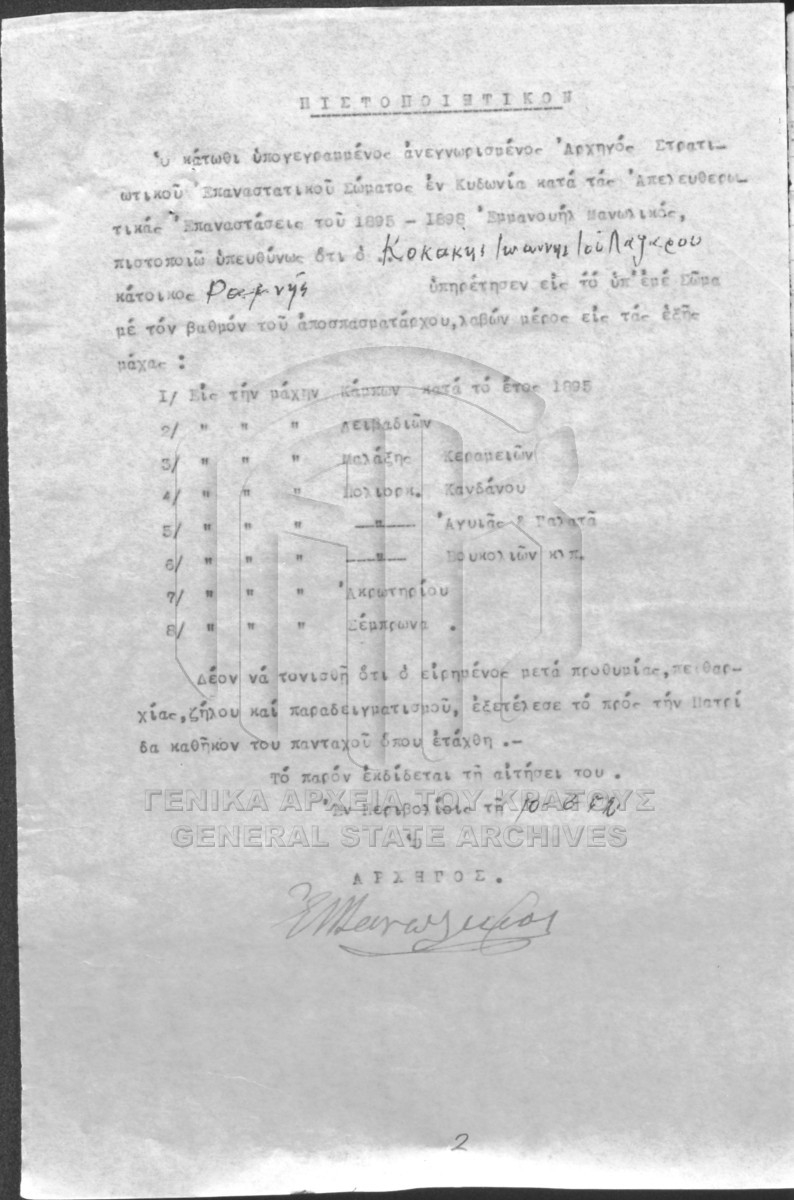 ΠΙΣΤΟΠΟΙΗΤΙΚΟΝ
Ὁ κάτωθι ὑπογεγραμμένος ἀνεγνωρισμένος Ἀρχηγός Στρατι-
ωτικοῦ Ἐπαναστατικοῦ Σώματος ἐν Κυδωνίᾳ κατά τάς Ἀπελευθερω-
τικάς Ἐπαναστάσεις τοῦ 1895 - 1898 Ἐμμανουήλ Μανωλικός,
πιστοποιῶ ὑπευθύνως ὅτι ὁ Κοκακης Ιωαννης του Λαζαρου
κάτοικος Ραμνῆς ὑπηρέτησεν εἰς τό ὑπ'ἐμέ Σῶμα
μέ τόν βαθμόν τοῦ ἀποσπασματάρχου, λαβών μέρος εἰς τάς ἑξῆς
μάχας :
1/ Εἰς τήν μάχην Κάμπων κατά τό ἔτος 1895
2/ " " " Λειβαδιῶν
3/ " " " Μαλάξης Κεραμειῶν
4/ " " " Πολιορκ. Κανδάνου
5/ " " " —"— Ἀγυιᾶς & Γαλατᾶ
6/ " " " —"— Βουκολιῶν κλπ.
7/ " " " Ἀκρωτηρίου
8/ " " " Σέμπρωνα .
Δέον νά τονισθῆ ὅτι ὁ εἰρημένος μετά προθυμίας, πειθαρ-
χίας, ζήλου καί παραδειγματισμοῦ, ἐξετέλεσε τό πρός τήν Πατρί
δα καθῆκον του πανταχοῦ ὅπου ἐτάχθη .-
Τό παρόν ἐκδίδεται τῆ αἰτήσει του .
ΓΕΝΙΚΑ ΑΡΧΕΙΑ ΤΟΥ ΚΡΑΤΟΥΣ
Ἐν Περιβολίοις τῆ
GENERAL STATE ARCHIVES
Ὁ
ΑΡΧΗΓΟΣ.
Ἐ Μανωλικος
2